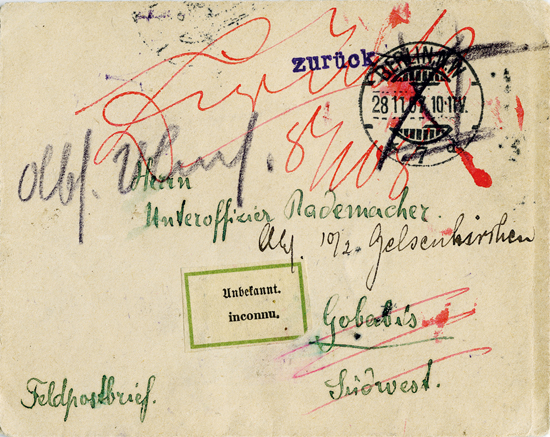 zurück
BERLIN N.W.
28.11.07. 10-11V.
* 7 a *
Abs.
Herrn
Unterofficier Rademacher.
Abs. 10/2. Gelsenkirchen
Unbekannt.
inconnu.
Gobabis
Südwest.
Feldpostbrief.